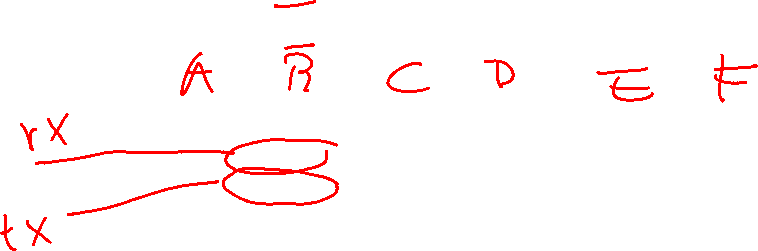 A B C D E F
rx
tx